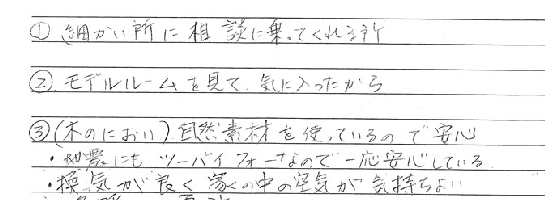 ① 細かい所に相談に乗ってくれる所
② モデルルームを見て、気に入ったから
③ (木のにおい) 自然素材を使っているので安心
・地震にもツーバイフォーなので一応安心している。
・換気が良く家の中の空気が気持ちよい